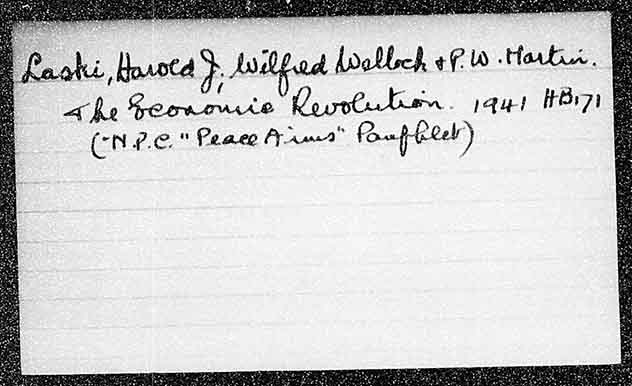 Laski, Harold J, Wilfred Wellock & P. W. Martin.
The Economic Revolution. 1941 HB171
(N.P.C. "Peace Aims" Pamphlet)